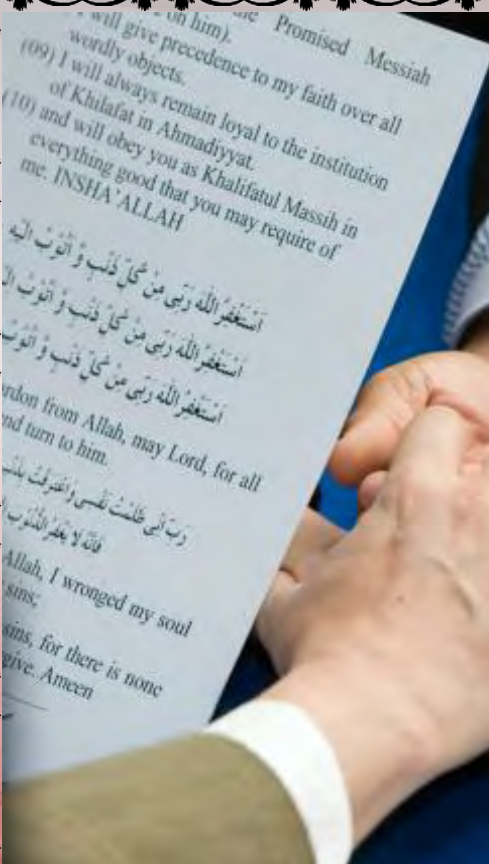 the Promised Messiah
on him).
I will give precedence to my faith over all
wordly objects.
(09) I will always remain loyal to the institution
of Khilafat in Ahmadiyyat.
(10) and will obey you as Khalifatul Massih in
everything good that you may require of
me, INSHA'ALLAH
اَسْتَغْفِرُ اللّٰهَ رَبِّى مِنْ كُلِّ ذَنْبٍ وَّ اَتُوْبُ اِلَيْهِ
اَسْتَغْفِرُ اللّٰهَ رَبِّى مِنْ كُلِّ ذَنْبٍ وَّ اَتُوْبُ
اَسْتَغْفِرُ اللّٰهَ رَبِّى مِنْ كُلِّ ذَنْبٍ وَّ اَتُوْبُ
rdon from Allah, may Lord, for all
nd turn to him.
رَبِّ اِنِّى ظَلَمْتُ نَفْسِى وَاعْتَرَفْتُ
فَاِنَّهُ لَا يَغْفِرُ الذُّنُوْبَ
Allah, I wronged my soul
sins;
sins, for there is none
give. Ameen